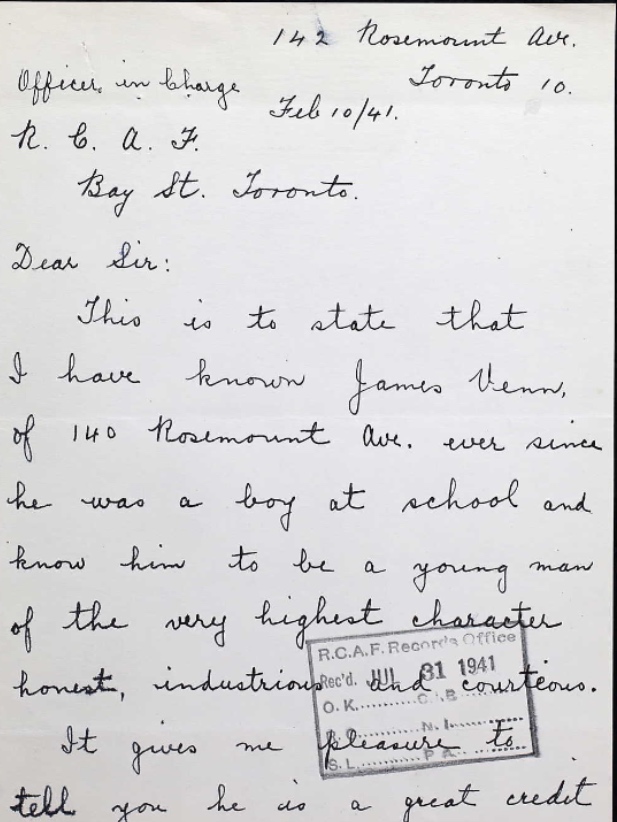 142 Rosemount Ave.
Toronto 10.
Officer in Charge
Feb 10/41.
R. C. A. F.
Bay St. Toronto.
Dear Sir:
This is to state that
I have known James Venn,
of 140 Rosemount Ave. ever since
he was a boy at school and
know him to be a young man
of the very highest character
honest, industrious and courteous.
It gives me pleasure to
tell you he is a great credit
R.C.A.F. Records Office
Rec'd. JUL 31 1941
O.K.
N.I.
S.L. P.A.